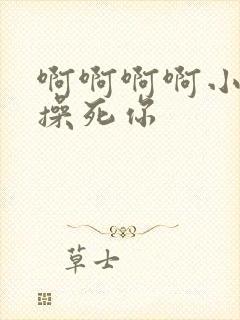 啊啊啊啊小
操死你
草士